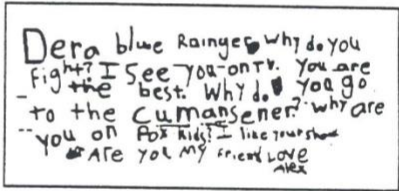 Dera blue Rainger why do you
fight? I See you on TV. You are
the best. Why do you go
to the Cumansener? why are
you on Fox Kids? I like your show
Are you my friend Love
Alex